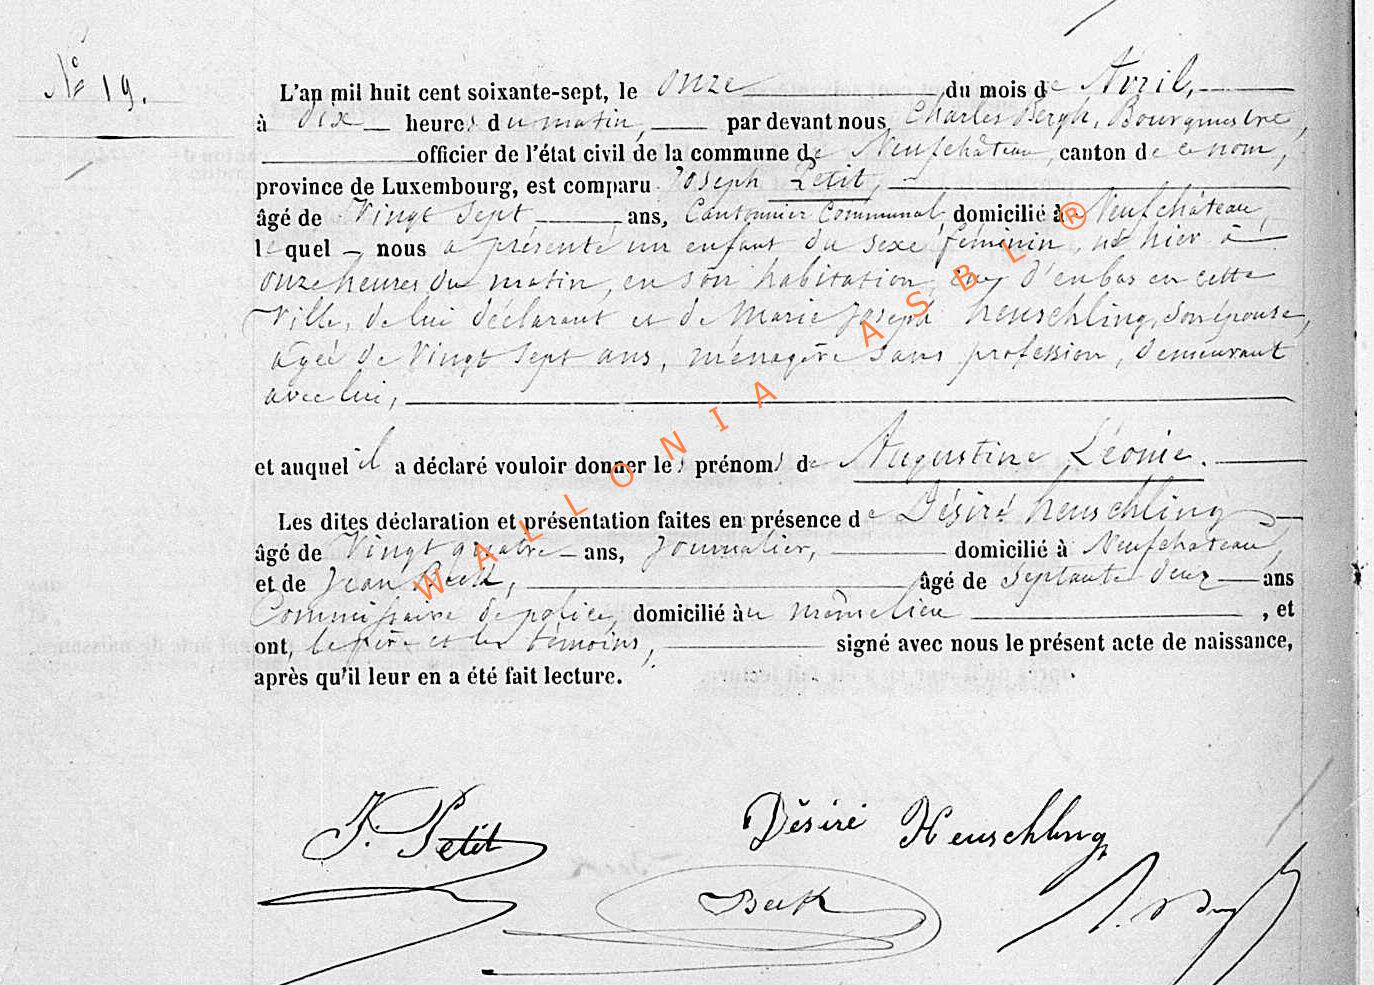 N° 19.
L'an mil huit cent soixante-sept, le onze du mois de Avril,
à Dix heures du matin, par devant nous Charles Bergh, Bourgmestre,
officier de l'état civil de la commune de Neufchâteau, canton de ce nom,
province de Luxembourg, est comparu Joseph Petit,
âgé de Vingt sept ans, Cantonnier Communal, domicilié à Neufchâteau,
lequel nous a présenté un enfant du sexe féminin, né hier à
onze heures du matin, en son habitation, d'en bas en cette
Ville, de lui déclarant et de Marie Joseph heuschling, son épouse,
agée de Vingt sept ans, ménagère sans profession, demeurant
avec lui,
et auquel il a déclaré vouloir donner les prénoms de Augustine Léonie.
Les dites déclaration et présentation faites en présence de Désiré heuschling
âgé de Vingt quatre ans, Journalier, domicilié à Neufchateau,
et de Jean Beck, âgé de Septante deux ans
Commissaire de police, domicilié au même lieu , et
ont, le père et les témoins, signé avec nous le présent acte de naissance,
après qu'il leur en a été fait lecture.
J. Petit
Désiré Heuschling
Beck
WALLONIA ASBL ®